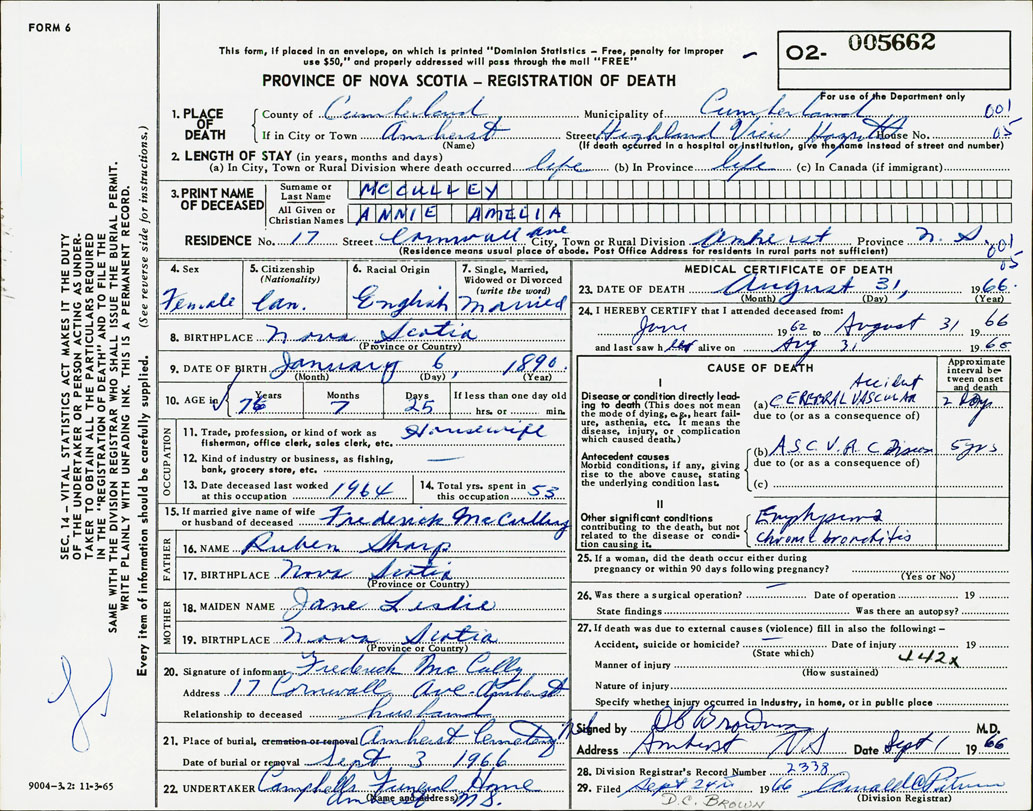 FORM 6
This form, if placed in an envelope, on which is printed "Dominion Statistics – Free, penalty for improper
use $50," and properly addressed will pass through the mail "FREE"
PROVINCE OF NOVA SCOTIA – REGISTRATION OF DEATH
O2- 005662
For use of the Department only
1. PLACE OF DEATH
County of Cumberland Municipality of Cumberland 001
If in City or Town Amherst Street Highland View Hospital House No. 05
(Name) (If death occurred in a hospital or institution, give the name instead of street and number)
2. LENGTH OF STAY (in years, months and days)
(a) In City, Town or Rural Division where death occurred life (b) In Province life (c) In Canada (if immigrant)
3. PRINT NAME OF DECEASED
Surname or Last Name MCCULLEY
All Given or Christian Names ANNIE AMELIA
RESIDENCE No. 17 Street Cornwall Ave City, Town or Rural Division Amherst Province N.S. 001
(Residence means usual place of abode. Post Office Address for residents in rural parts not sufficient) 05
4. Sex Female
5. Citizenship (Nationality) Can.
6. Racial Origin English
7. Single, Married, Widowed or Divorced (write the word) Married
8. BIRTHPLACE Nova Scotia
(Province or Country)
9. DATE OF BIRTH January 6, 1890.
(Month) (Day) (Year)
10. AGE in Years 76 Months 7 Days 25 If less than one day old hrs. or min.
OCCUPATION
11. Trade, profession, or kind of work as fisherman, office clerk, sales clerk, etc. Housewife
12. Kind of industry or business, as fishing, bank, grocery store, etc. —
13. Date deceased last worked at this occupation 1964
14. Total yrs. spent in this occupation 53
15. If married give name of wife or husband of deceased Frederick McCulley
FATHER
16. NAME Ruben Sharp
17. BIRTHPLACE Nova Scotia
(Province or Country)
MOTHER
18. MAIDEN NAME Jane Leslie
19. BIRTHPLACE Nova Scotia
(Province or Country)
20. Signature of informant Frederick McCully
Address 17 Cornwall Ave Amherst
Relationship to deceased husband
21. Place of burial, cremation or removal Amherst Cemetery
Date of burial or removal Sept 3 1966
22. UNDERTAKER Campbells Funeral Home
Amherst N.S.
(Name and Address)
MEDICAL CERTIFICATE OF DEATH
23. DATE OF DEATH August 31, 1966.
(Month) (Day) (Year)
24. I HEREBY CERTIFY that I attended deceased from:
June 1962 to August 31 1966
and last saw her alive on Aug 31 1966
CAUSE OF DEATH
Approximate interval between onset and death
I
Disease or condition directly leading to death (This does not mean the mode of dying, e.g., heart failure, asthenia, etc. It means the disease, injury, or complication which caused death.)
(a) CEREBRAL VASCULAR Accident 2 Days
due to (or as a consequence of)
Antecedent causes
Morbid conditions, if any, giving rise to the above cause, stating the underlying condition last.
(b) A.S.C.V.R.C Disease 5 yrs
due to (or as a consequence of)
(c)
II
Other significant conditions contributing to the death, but not related to the disease or condition causing it.
Emphysema
chronic bronchitis
25. If a woman, did the death occur either during pregnancy or within 90 days following pregnancy?
(Yes or No)
26. Was there a surgical operation? — Date of operation 19
State findings Was there an autopsy?
27. If death was due to external causes (violence) fill in also the following: –
Accident, suicide or homicide? — Date of injury 19
(State which) 442x
Manner of injury
(How sustained)
Nature of injury
Specify whether injury occurred in Industry, in home, or in public place
Signed by DC Brown M.D.
Address Amherst N.S Date Sept 1 1966
28. Division Registrar's Record Number 2338
29. Filed Sept 24 1966
(Division Registrar)
D.C. BROWN
SEC. 14 – VITAL STATISTICS ACT MAKES IT THE DUTY
OF THE UNDERTAKER OR PERSON ACTING AS UNDER-
TAKER TO OBTAIN ALL THE PARTICULARS REQUIRED
IN THE "REGISTRATION OF DEATH" AND TO FILE THE
SAME WITH THE DIVISION REGISTRAR WHO SHALL ISSUE THE BURIAL PERMIT.
WRITE PLAINLY WITH UNFADING INK. THIS IS A PERMANENT RECORD.
Every item of information should be carefully supplied. (See reverse side for instructions.)
9004-3.2: 11-3-65